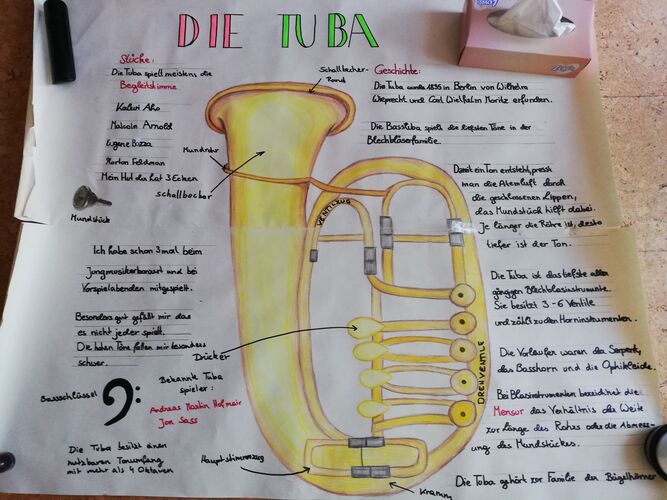 DIE TUBA
Stücke:
Die Tuba spielt meistens die
Begleitstimme
Kalevi Aho
Malcolm Arnold
Eugene Bozza
Morton Feldman
Mein Hut der hat 3 Ecken
Mundstück
Ich habe schon 3 mal beim
Jungmusikerkonzert und bei
Vorspielabenden mitgespielt.
Besonders gut gefällt mir das
es nicht jeder spielt.
Die hohen Töne fallen mir besonders
schwer.
Bassschlüssel
Bekannte Tuba
spieler:
Andreas Martin Hofmeir
Jon Sass
Die Tuba besitzt einen
nutzbaren Tonumfang
mit mehr als 4 Oktaven
Schallbecher-
Rand
Mundrohr
Schallbecher
VENTILZUG
Drücker
DREHVENTILE
Hauptstimmzug
Geschichte:
Die Tuba wurde 1835 in Berlin von Wilhelm
Wieprecht und Carl Wilhelm Moritz erfunden.
Die Basstuba spielt die tiefsten Töne in der
Blechbläserfamilie.
Damit ein Ton entsteht, presst
man die Atemluft durch
die geschlossenen Lippen,
das Mundstück hilft dabei.
Je länger die Röhre ist, desto
tiefer ist der Ton.
Die Tuba ist das tiefste aller
gängigen Blechblasinstrumente.
Sie besitzt 3 - 6 Ventile
und zählt zu den Horninstrumenten.
Die Vorläufer waren das Serpent,
das Basshorn und die Ophikleide.
Bei Blasinstrumenten bezeichnet die
Mensur das Verhältnis der Weite
zur Länge des Rohres oder die Abmess-
ung des Mundstückes.
Die Tuba gehört zur Familie der Bügelhörner